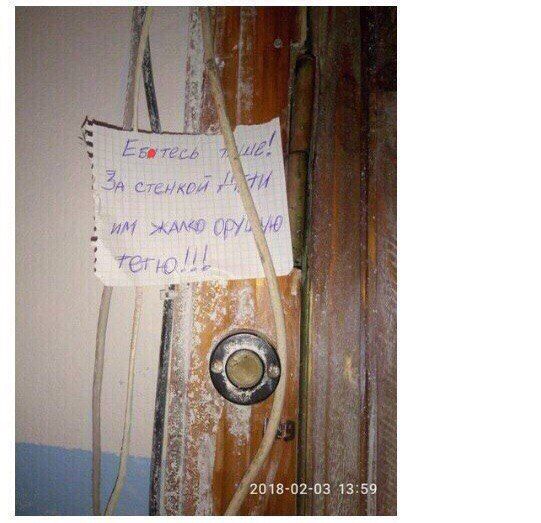 Ебтесь тише!
За стенкой дети
им жалко орущую
тетю!!!
2018-02-03 13:59